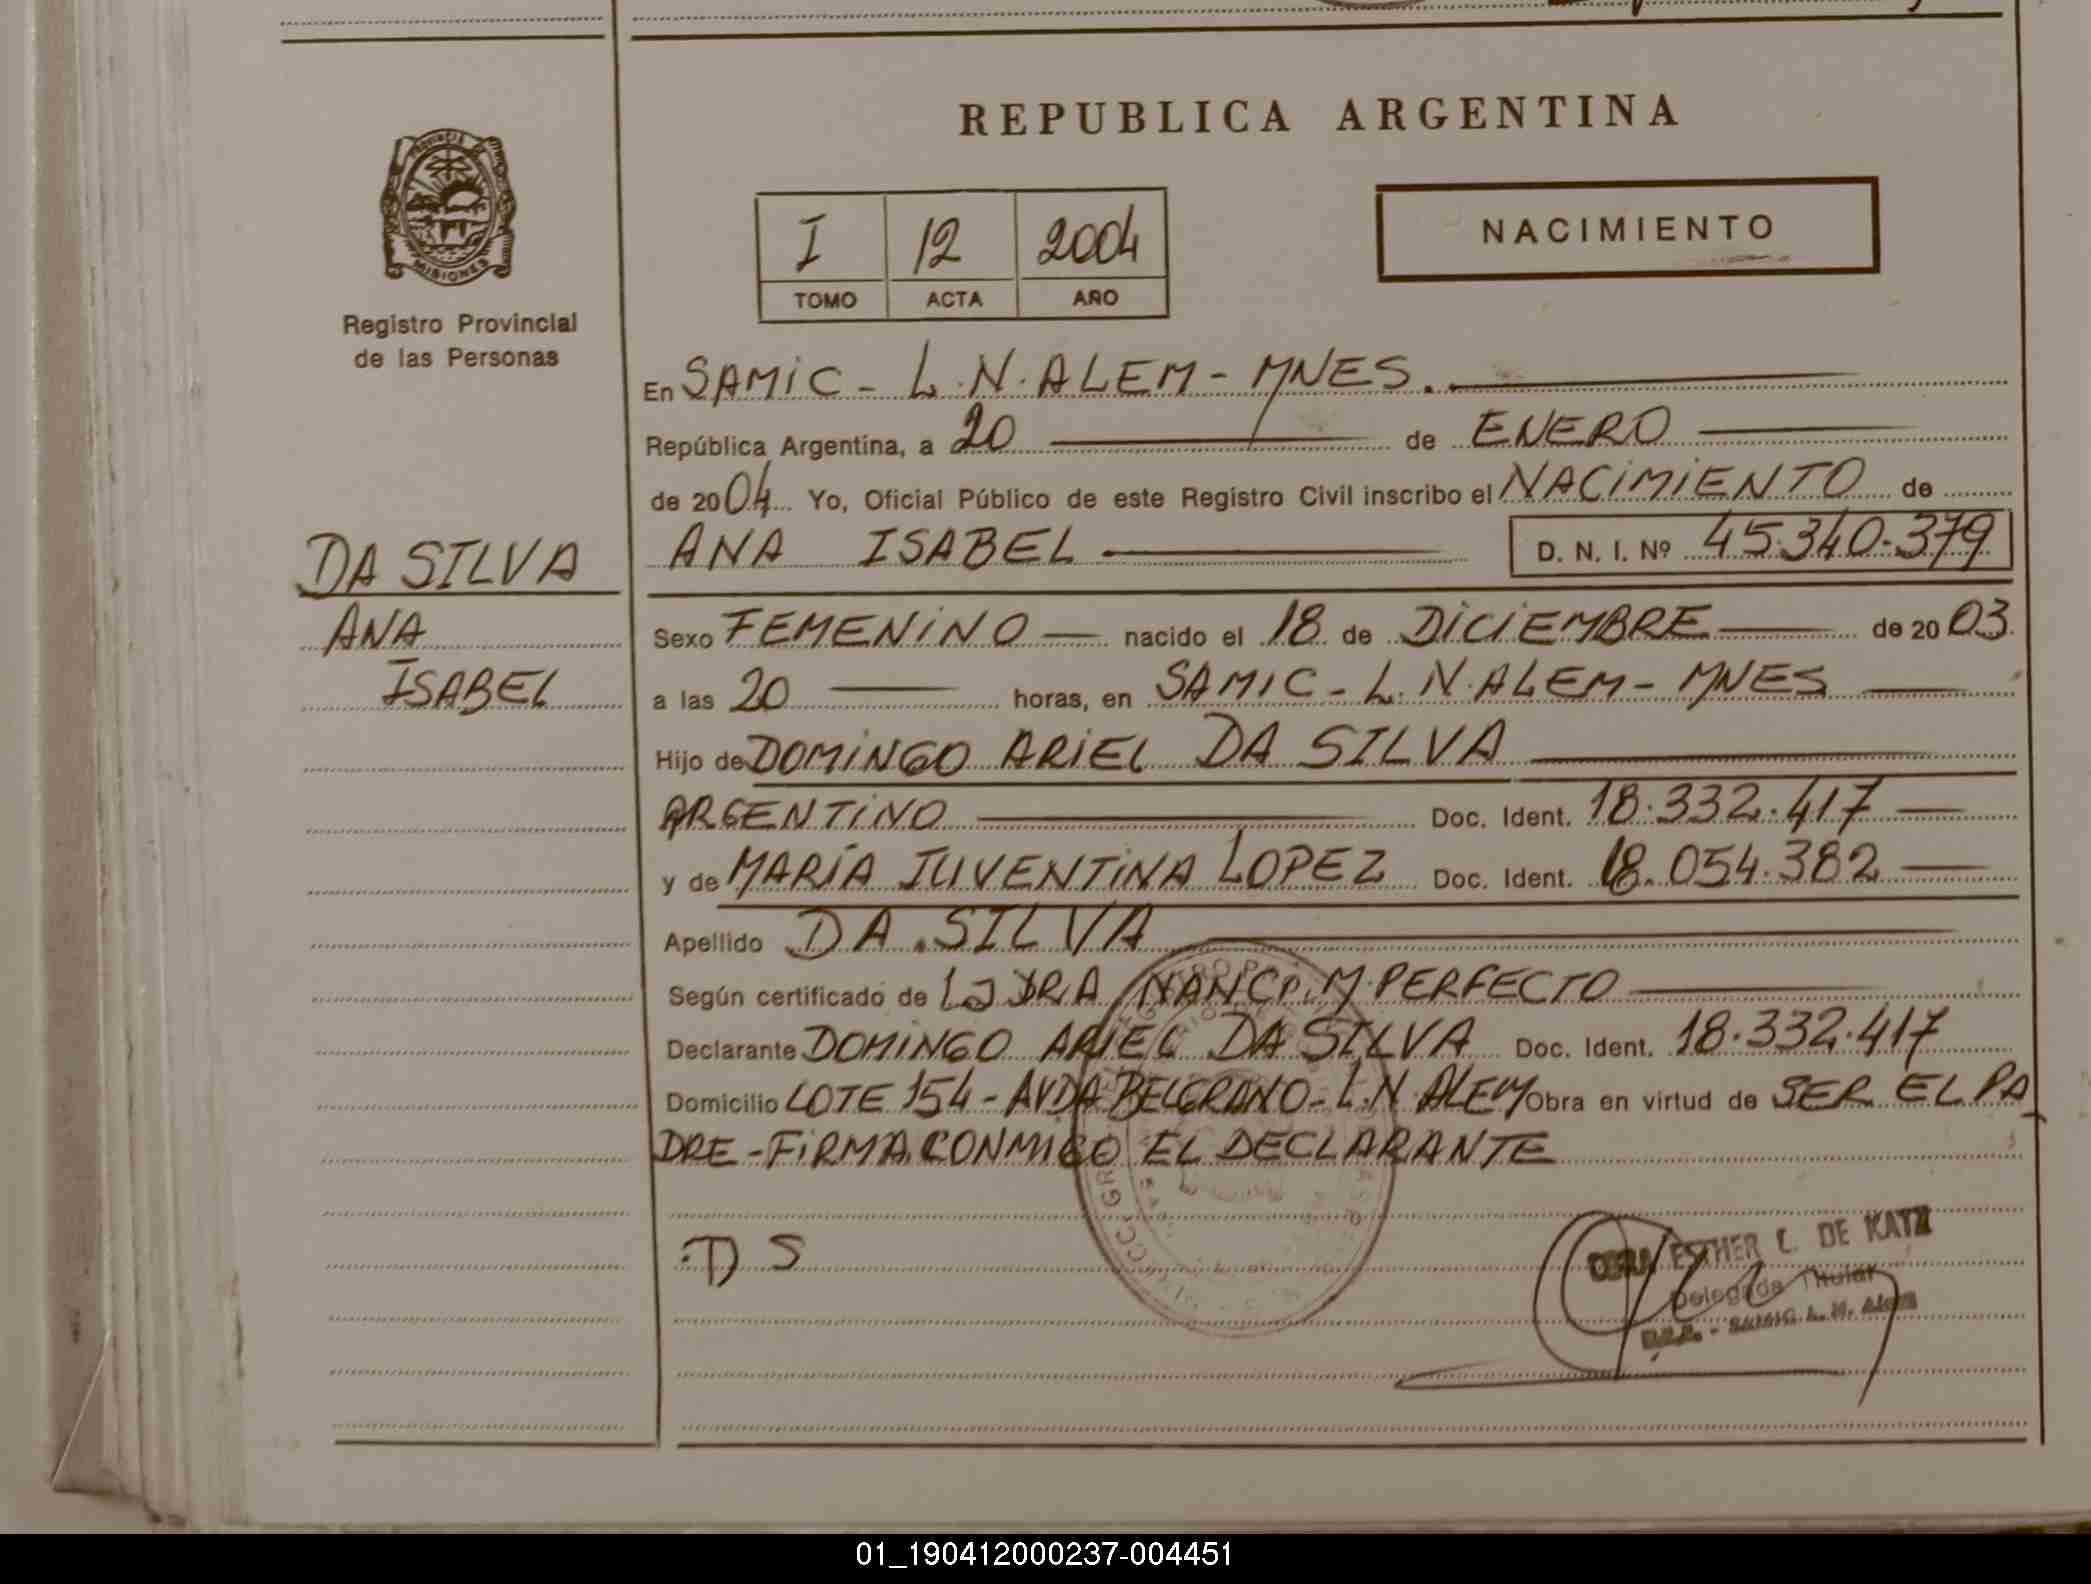 REPUBLICA ARGENTINA
PROVINCIA DE
MISIONES
Registro Provincial
de las Personas
I 12 2004
TOMO ACTA AÑO
NACIMIENTO
En SAMIC - L.N. ALEM - MNES.
República Argentina, a 20 de ENERO
de 2004 Yo, Oficial Público de este Registro Civil inscribo el NACIMIENTO de
DA SILVA
ANA
ISABEL
ANA ISABEL D. N. I. Nº 45.340.379
Sexo FEMENINO nacido el 18 de DICIEMBRE de 2003
a las 20 horas, en SAMIC - L.N. ALEM - MNES
Hijo de DOMINGO ARIEL DA SILVA
ARGENTINO Doc. Ident. 18.332.417
y de MARÍA JUVENTINA LOPEZ Doc. Ident. 18.054.382
Apellido DA SILVA
Según certificado de DRA M. PERFECTO
Declarante DOMINGO ARIEL DA SILVA Doc. Ident. 18.332.417
Domicilio LOTE 154 - AVDA BELGRANO - L.N. ALEM Obra en virtud de SER EL PA
DRE - FIRMA CONMIGO EL DECLARANTE
D S
ESTHER C. DE KATZ
Delegada Titular
SAMIC L. N. Alem
01_190412000237-004451